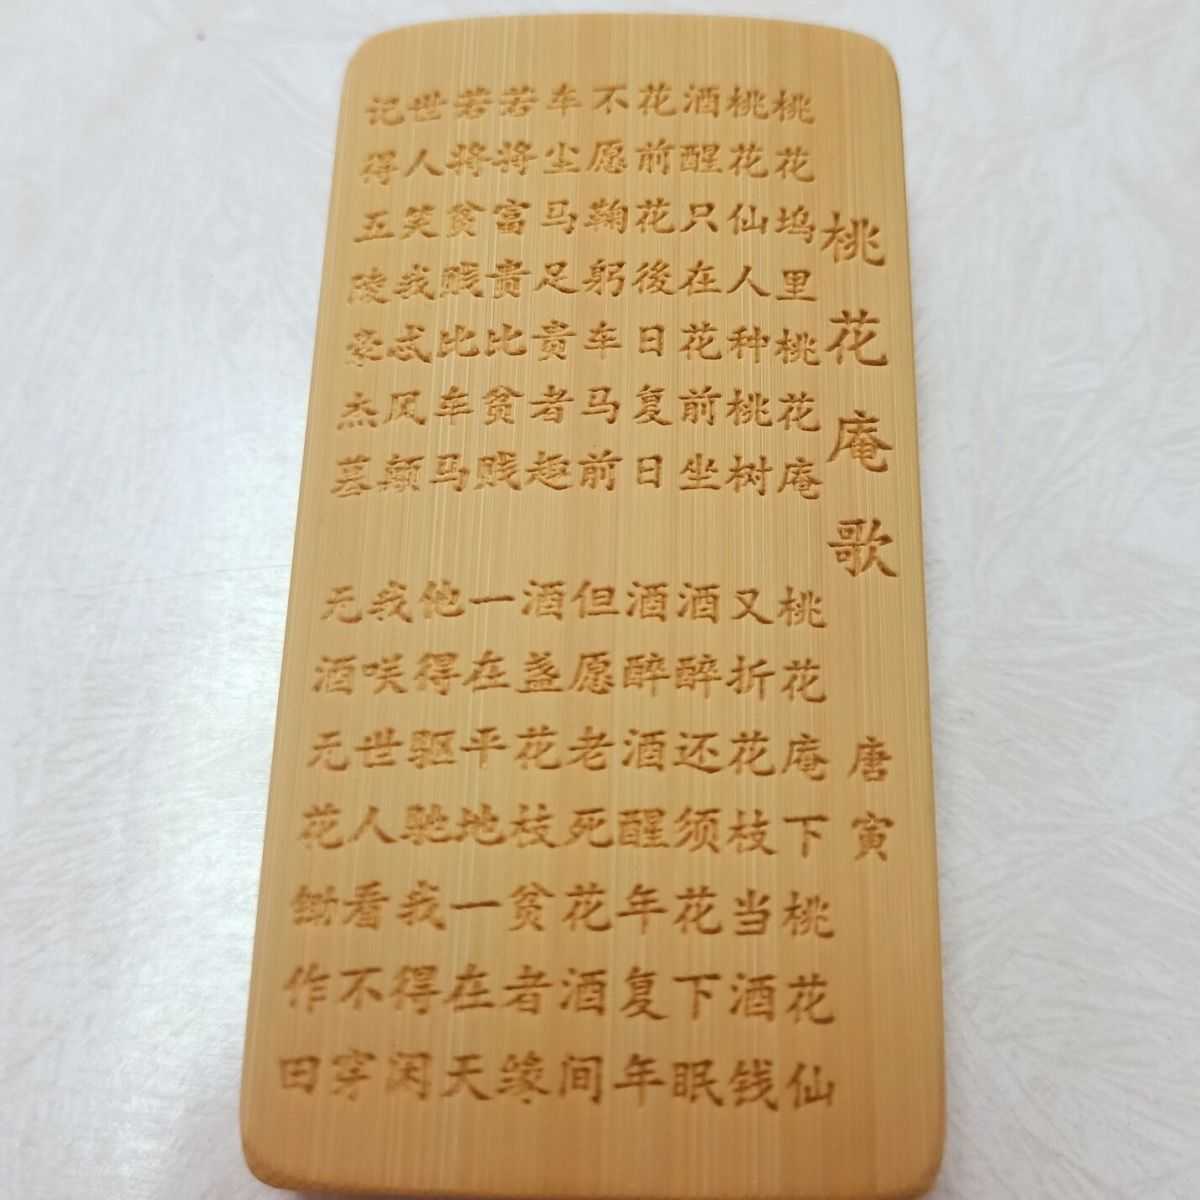 桃花庵歌 唐寅
桃花坞里桃花庵 桃花庵下桃花仙
桃花仙人种桃树 又折花枝当酒钱
酒醒只在花前坐 酒醉还须花下眠
花前花後日复日 酒醉酒醒年复年
不愿鞠躬车马前 但愿老死花酒间
车尘马足贵者趣 酒盏花枝贫者缘
若将富贵比贫贱 一在平地一在天
若将贫贱比车马 他得驱驰我得闲
世人笑我忒风颠 我咲世人看不穿
记得五陵豪杰墓 无酒无花锄作田